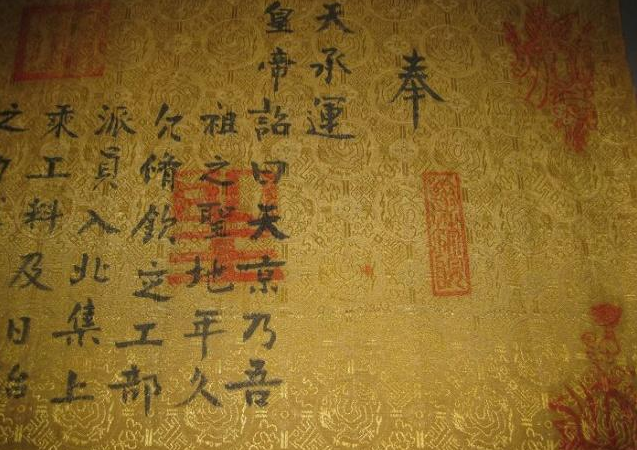 奉
天承運
皇帝詔曰天京乃吾
祖之聖地年久
欠脩欽定工部
派員入北集上
乘工料及日台
之